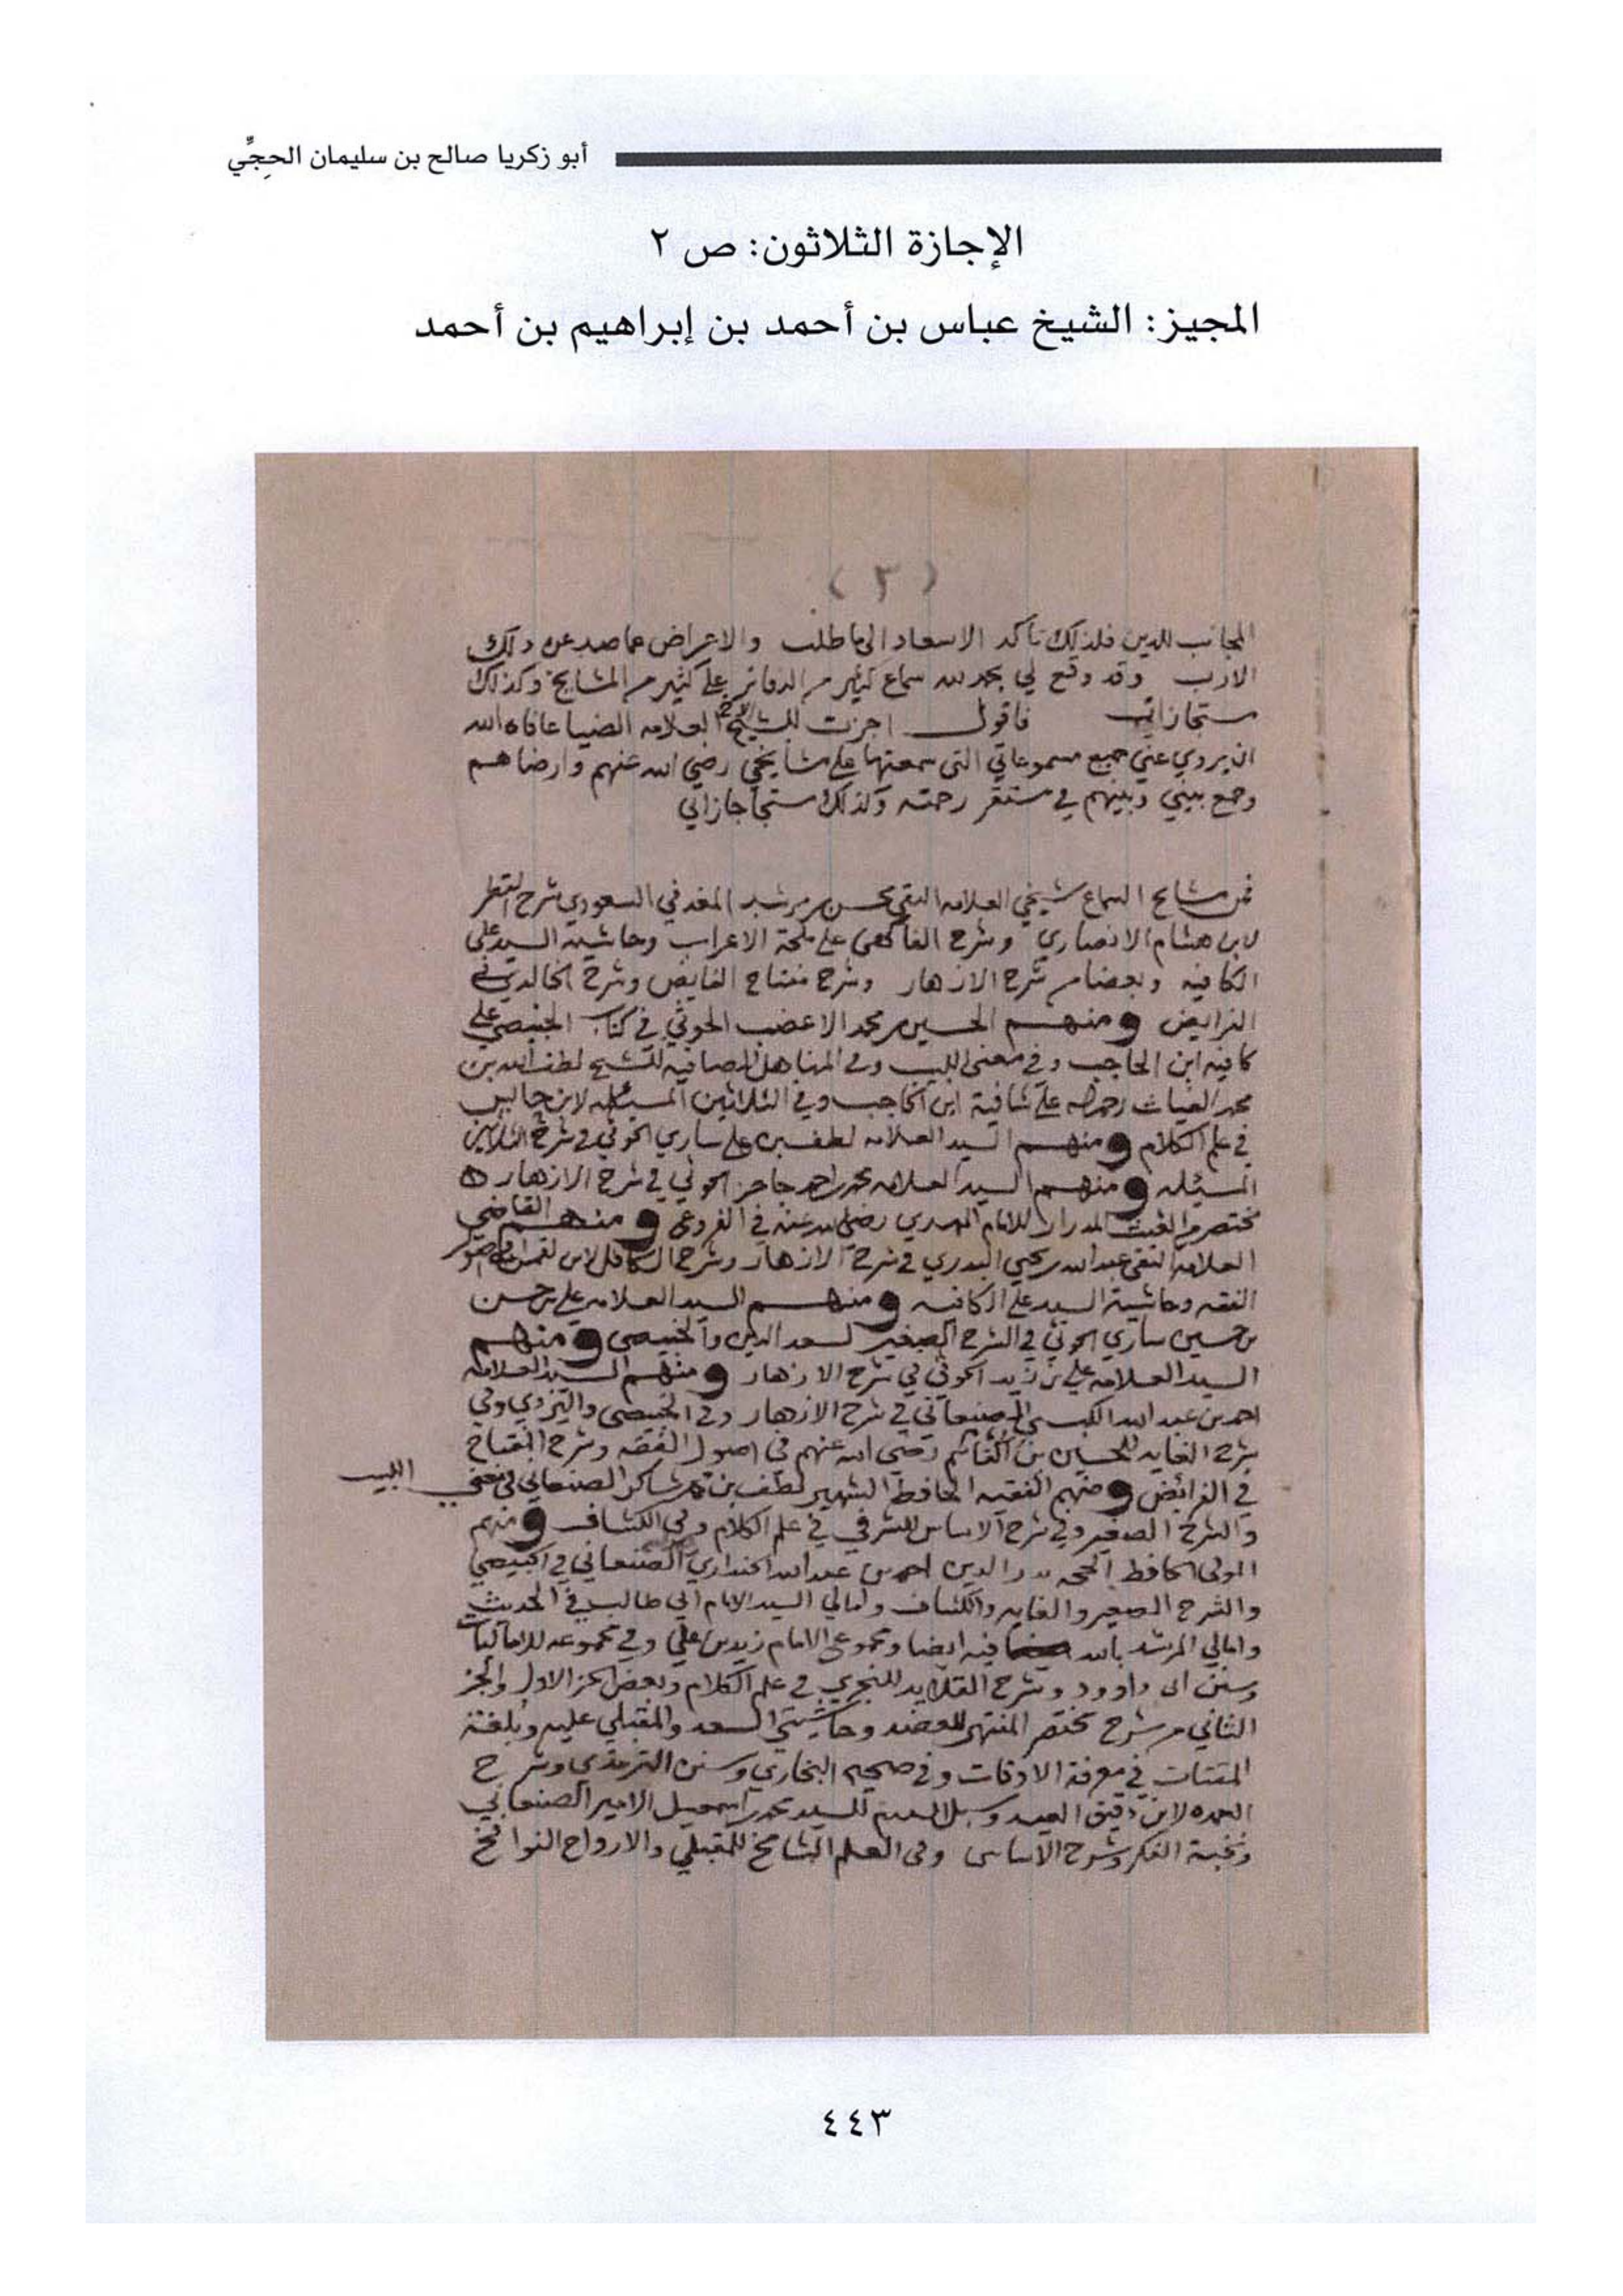 أبو زكريا صالح بن سليمان الحجِّي
الإجازة الثلاثون: ص ٢
المجيز: الشيخ عباس بن أحمد بن إبراهيم بن أحمد
(٣)
المجانب للدين فلذلك تأكد الاسعاد الى ما طلب والاعراض عما صد عن ذلك
الارب وقد وقع لي بحمد لله سماع كثير من الدفاتر على كثير من المشايخ وكذلك
مستجازاتي فاقول اجزت للشيخ العلامه الضيا عافاه الله
ان يروي عني جميع مسموعاتي التي سمعتها على مشايخي رضي الله عنهم وارضاهم
وجمع بيني وبينهم في مستقر رحمته وكذلك
فمن مشايخ السماع شيخي العلامه التقي محسن بن مرشد المغدفي السعودي شرح القطر
لابن هشام الانصاري وشرح الفاكهي على ملحة الاعراب وحاشيه السيد على
الكافيه وبعضا من شرح الازهار وشرح مفتاح الفايض وشرح الخالدي في
الفرايض ومنهم الحسين بن محمد الاعضب الحوثي في كتاب الخبيصي على
كافيه ابن الحاجب وفي مغني اللبيب وفي المناهل الصافيه للشيخ لطف الله بن
محمد الغياث رحمه الله على شافية ابن الحاجب وفي الثلاثين المسئله لابن حابس
في علم الكلام ومنهم السيد العلامه لطف بن علي ساري الحوثي في شرح الثلاثين
المسئله ومنهم السيد العلامه محمد بن احمد حاجز الحوثي في شرح الازهار
مختصر من الغيث المدرار للامام المهدي رضي الله عنه في الفروع ومنهم القاضي
العلامه التقي عبد الله بن يحيى البدري في شرح الازهار وشرح الكافل لابن لقمان في اصول
الفقه وحاشية السيد على الكافيه ومنهم السيد العلامه علي بن حسن
بن حسين ساري الحوثي في الشرح الصغير لسعد الدين والخبيصي ومنهم
السيد العلامه علي بن زيد الحوثي في شرح الازهار ومنهم السيد العلامه
احمد بن عبد الله الكبسي الصنعاني في شرح الازهار وفي الخبيصي واليزدي وفي
شرح الغايه للحسين بن القاسم رضي الله عنهم في اصول الفقه وشرح المفتاح
في الفرائض ومنهم الفقيه الحافظ الشهير لطف بن محمد شاكر الصنعاني في مغني اللبيب
والشرح الصغير وفي شرح الاساس للشرفي في علم الكلام وفي الكشاف ومنهم
المولى الحافظ الحجه بدر الدين احمد بن عبد الله الجنداري الصنعاني في الخبيصي
والشرح الصغير والغايه والكشاف وامالي السيد الامام ابي طالب في الحديث
وامالي المرشد بالله فيه ايضا ومجموع الامام زيد بن علي وفي
وسنن ابي داوود وشرح القلايد للنجري في علم الكلام وبعض الجز الاول والجز
الثاني من شرح مختصر المنتهى للعضد وحاشيتي السعد والمقبلي عليه وبلغة
المقتات في معرفة الاوقات وفي صحيح البخاري وسنن الترمذي وشرح
العمده لابن دقيق العيد وسبل السلام للسيد محمد بن اسمعيل الامير الصنعاني
ونخبة الفكر وشرح الاساس وفي العلم الشامخ للمقبلي والارواح النوافخ
٤٤٣